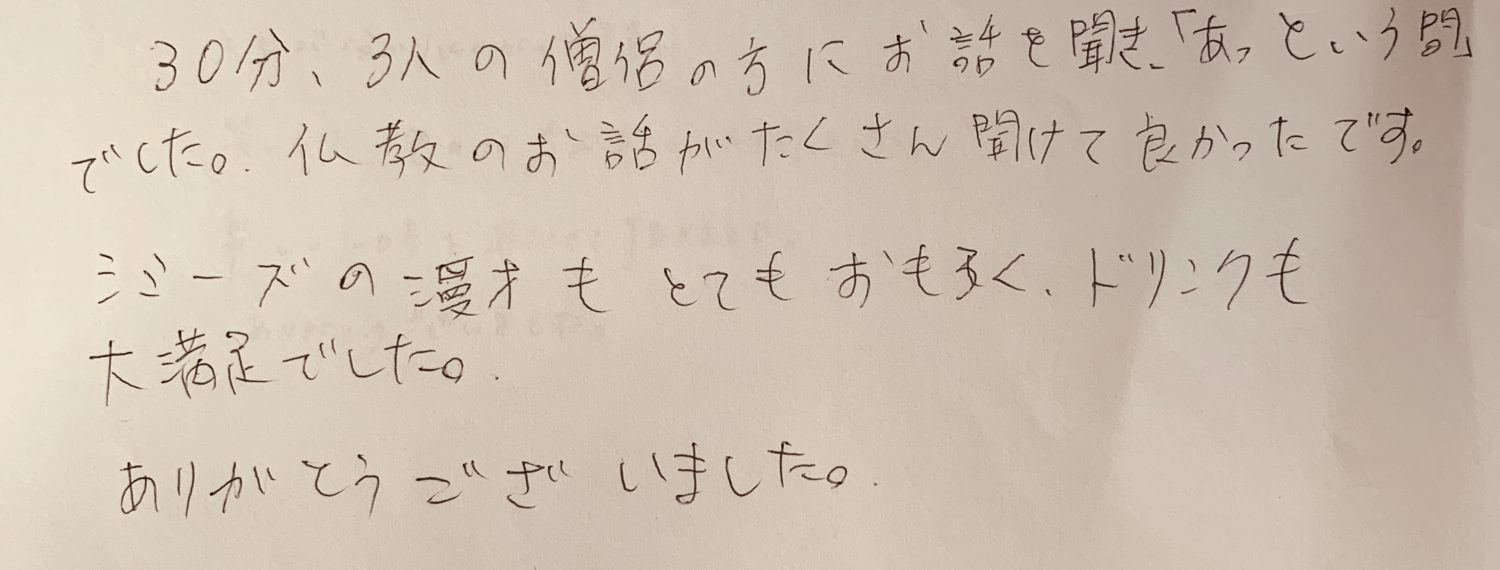 30分、3人の僧侶の方にお話を聞き、「あっという間」
でした。仏教のお話がたくさん聞けて良かったです。
ジジーズの漫才もとてもおもろく、ドリンクも
大満足でした。
ありがとうございました。